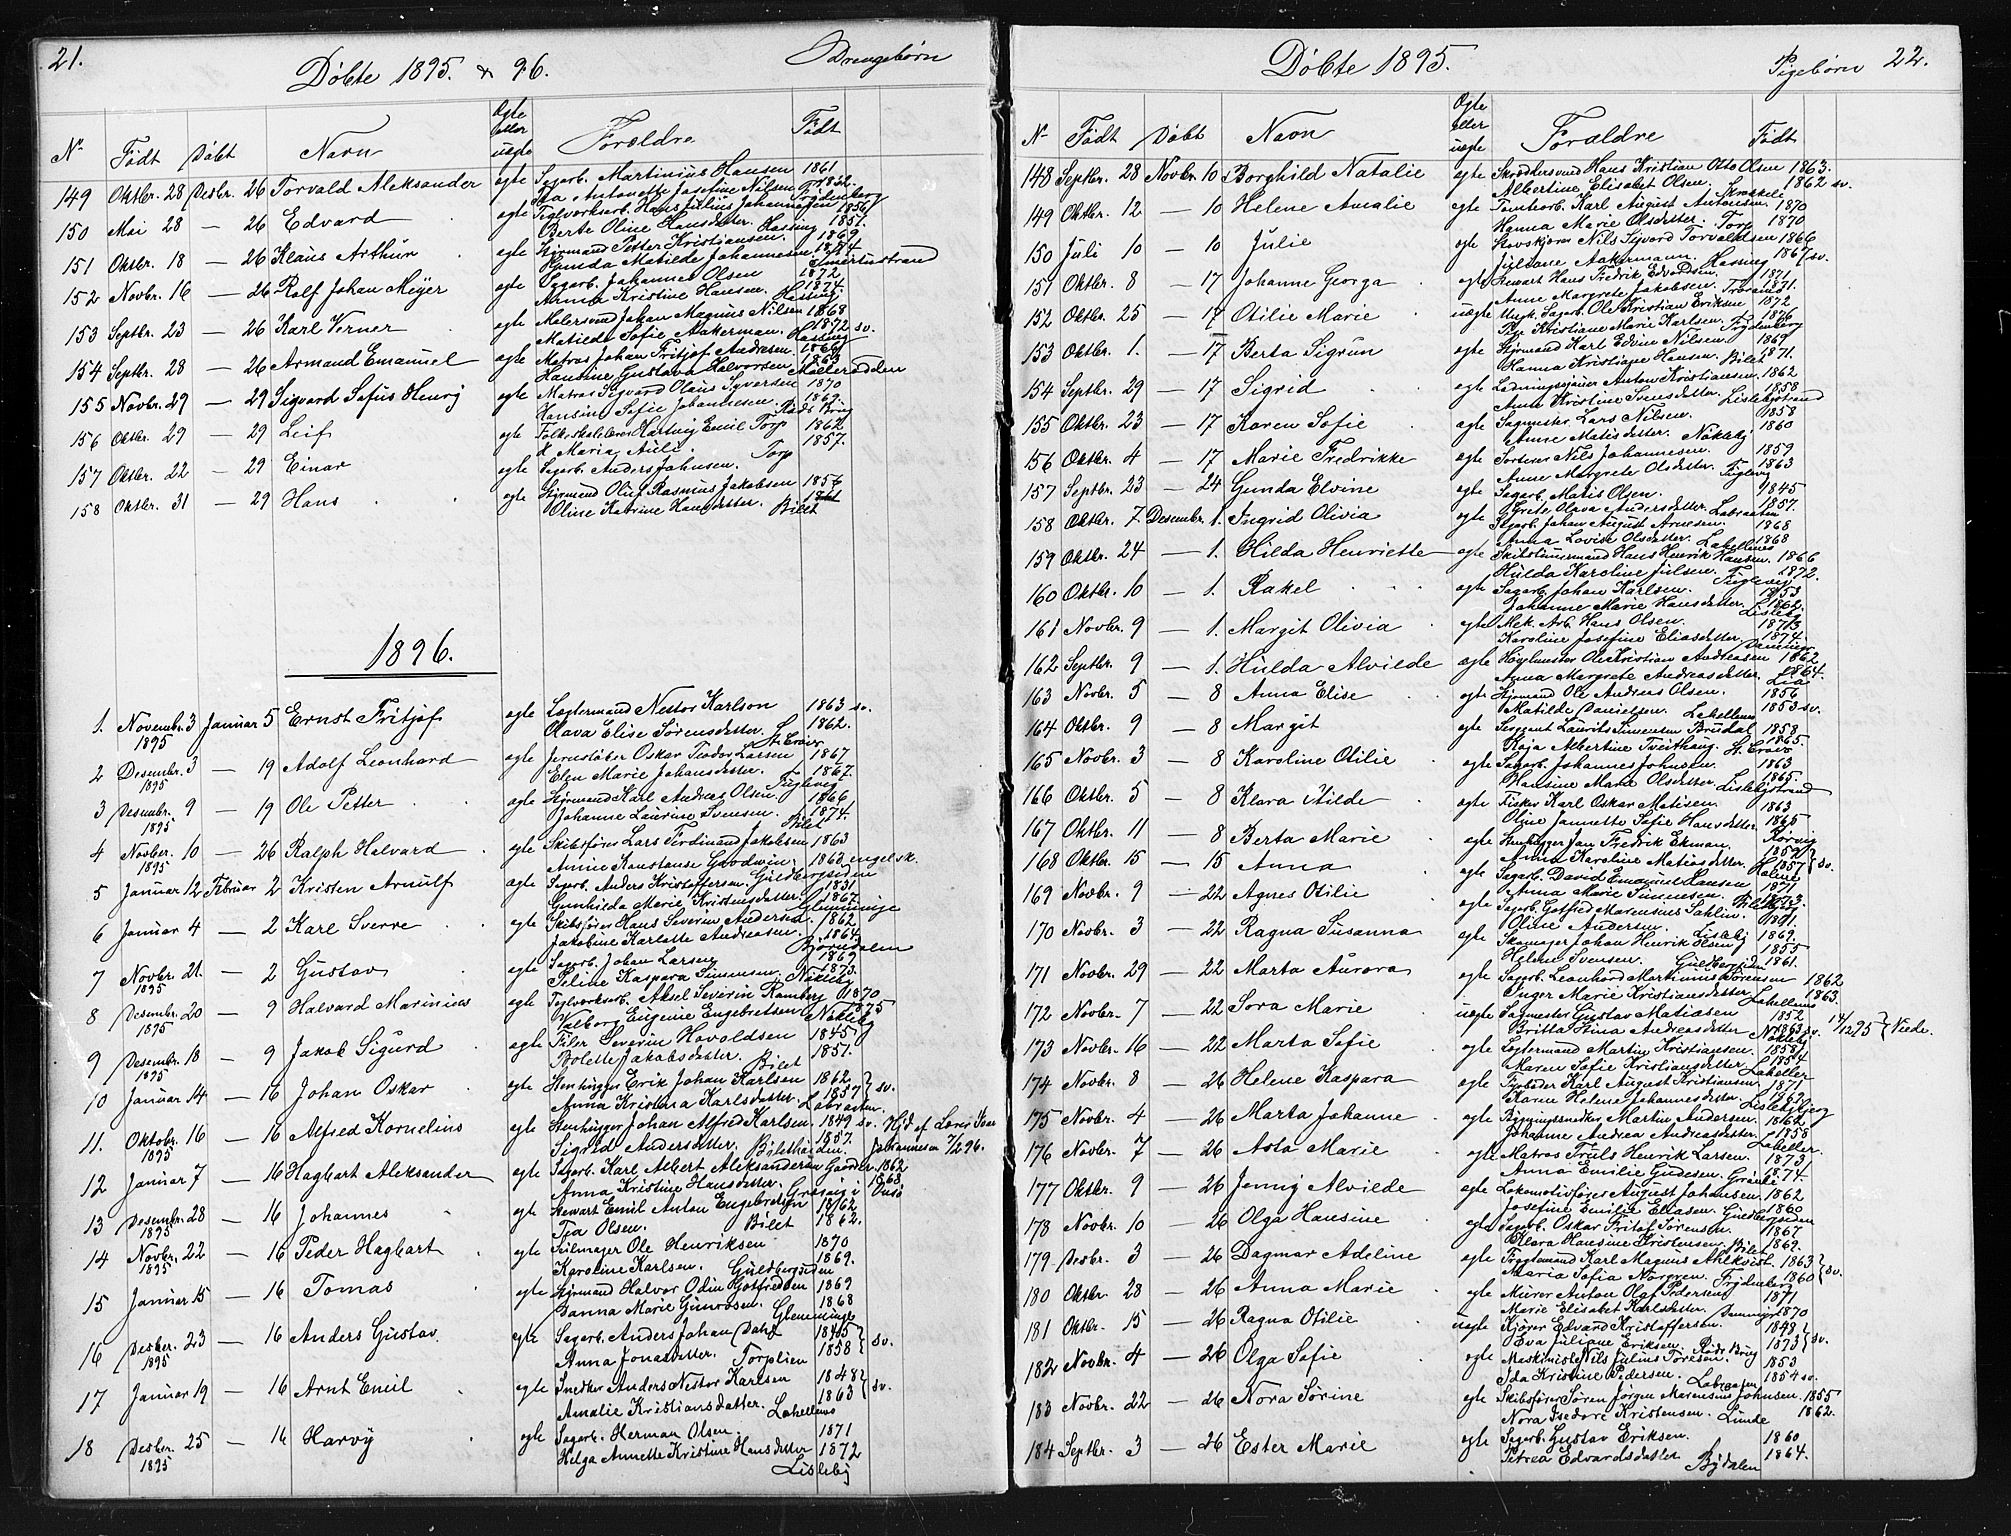 21.
Døbte 1895. & 96.
Drengebørn
Nr Født Døbt Navn Ægte eller uægte Forældre Født
149 Oktbr. 28 Desbr. 26 Torvald Aleksander egte Sagarb. Martinius Hansen 1861.
Ida Antonette Josefine Nilsen 1832. Frydenberg
150 Mai 28 — 26 Edvard egte Teglverksarb. Hans Julius Johannesen 1856
Berte Oline Hansdatter. Hassing 1851.
151 Oktbr. 18 — 26 Klaus Arthur egte Styrmand Petter Kristiansen. 1869
Gunda Matilde Johannesen. 1874
152 Novbr. 16 — 26 Rolf Johan Meyer egte Sagarb. Johannes Olsen 1872
Anna Kristine Hansen. Hassing 1874.
153 Septbr. 23 — 26 Karl Verner egte Malersvend Johan Magnus Nilsen 1868
Matilde Sofie Aakerman. Hassing 1872 sv.
154 Septbr. 28 — 26 Armand Emanuel egte Matros Johan Fritjof Andresen
Hansine Gustava Halvorsen 1863 Møllerodden
155 Novbr. 29 — 29 Sigvard Sofus Henry egte Matros Sigvard Olaus Syversen 1870
Hansine Sofie Johannesen. 1869.
156 Oktbr. 29 — 29 Leif egte Folkeskolelærer Hartvig Emil Torp 1862
& Maria Auli. Torp 1857.
157 Oktbr. 22 — 29 Einar egte Sagarb. Anders Johnsen.
158 Oktbr. 31 — 29 Hans egte Styrmand Oluf Rasmus Jakobsen 1856
Oline Katrine Hansdatter. Bilet
1896.
1. Novembr. 3 1895 Januar 5 Ernst Fritjof egte Lægtermand Nestor Karlson 1863 sv.
Olava Elise Sørensdatter. St. Croix 1862.
2 Desembr. 3 1895 — 19 Adolf Leonhard egte Jernstøber Oskar Teodor Larsen 1867
Elen Marie Johansdatter. Fuglevig 1867.
3 Desembr. 9 1895 — 19 Ole Petter egte Styrmand Karl Andreas Olsen. 1866
Johanne Laurine Svensen. Bilet 1874.
4 Novber. 10 1895 — 26 Ralph Halvard egte Skibsfører Lars Ferdinand Jakobsen 1863
Annie Konstanse Goodwin. 1863 engelsk.
5 Januar 12 Februar 2 Kristen Arnulf egte Sagarb. Anders Kristoffersen. Guldbergsiden 1831
Gunhilda Marie Kristensdatter. 1867. Glemminge
6 Januar 4 — 2 Karl Sverre egte Skibsfører Hans Severin Andersen 1862
Jakobine Karlotte Andreasen. 1864. Bjørndalen
7 Novbr. 21. 1895 — 2 Gustav egte Sagarb. Johan Larsen 1869
Seline Kaspara Simensen. Nøkleby 1873.
8 Desembr. 20 1895 — 9 Halvard Marinius egte Teglverksarb. Aksel Severin Ramberg 1870
Valborg Eugenie Engebretsen Nøkleby 1875
9 Desembr. 18 1895 — 9 Jakob Sigurd egte Filer Severin Havoldsen 1845
Bolette Jakobsdatter. Bilet 1851.
10 Januar 14 — 16 Johan Oskar egte Stenhugger Erik Johan Karlsen 1862
Anna Kristina Karlsdatter. Labraaten 1857 } sv.
11. Oktobr. 16 1895 — 16 Alfred Kornelius egte Stenhugger Johan Alfred Karlsen 1849 sv. Hjd. af Lærer Iver
Sigrid Andersdatter. 1857. Johannesen 7/2 96.
12 Januar 7 — 16 Hagbart Aleksander egte Sagarb. Karl Albert Aleksandersen Gander. 1862
Anna Kristine Hansdatter. Græsvig i Onsø 1868
13 Desembr. 28 1895 — 16 Johannes egte Stewart Emil Anton Engebretsen 1862
Tea Olsen. Bilet 1862.
14 Novbr. 22 1895 — 16 Peder Hagbart egte Seilmager Ole Henriksen 1870
Karoline Karlsen. Guldbergsiden 1869.
15 Januar 15 — 16 Tomas egte Styrmand Halvor Odin Gotfredsen 1869
Janna Marie Gunrosen. Glemminge 1868
16 Desber. 23 1895 — 16 Anders Gustav egte Sagarb. Anders Johan Dahl 1845
Anna Jonasdatter. Torplien 1858 } sv.
17 Januar 19 — 16 Arnt Emil egte Snedker Anders Nestor Karlsen 1848
Amalie Kristiansdatter. Lahellens 1863 } sv.
18 Desber. 25 1895 — 16 Harvy egte Sagarb. Herman Olsen. 1871
Helga Annette Kristine Hansdatter 1872
Lisleby
Døbte 1895.
Pigebørn 22.
Nr Født Døbt Navn Ægte eller uægte Forældre Født
148 Septbr. 28 Novbr. 10 Borghild Natalie egte Skræddersvend Hans Kristian Otto Olsen 1863.
Albertine Elisabet Olsen. 1862 sv.
149 Oktbr. 12 — 10 Helene Amalie egte Tomtearb. Karl August Antonsen 1870
Hanna Marie Olsdatter. Torp 1870
150 Juli 10 — 10 Julie egte Nils Sigvard Torvaldsen 1866
Juliane Aakermann. Hassing 1867 sv.
151 Oktbr. 8 — 17 Johanne Georga egte Stewart Hans Fredrik Edvardsen. 1871
Anne Margrete Jakobsen. 1871.
152 Oktbr. 25 — 17 Otilie Marie uægte Ungk. Sagarb. Ole Kristian Eriksen 1872
Pige Kristiane Marie Karlsen. Frydenberg 1876
153 Oktbr. 1. — 17 Berta Sigrun egte Styrmand Karl Edvin Nilsen 1869
Hanna Kristiane Hansen. Bilet 1871.
154 Septbr. 29 — 17 Sigrid egte Ladningssjouer Anton Kristiansen. 1862
Anne Kristine Svensdatter. Lislebystrand 1858
155 Oktbr. 23 — 17 Karen Sofie egte Sagmester Lars Nilsen. 1858
Anne Matisdatter. Nøkleby 1860
156 Oktbr. 4 — 17 Marie Fredrikke egte Sorterer Nils Johannesen. 1859
Anne Margrete Olsdatter. Fuglevig 1863
157 Septbr. 23 — 24 Gunda Elvine egte Sagarb. Matis Olsen. 1845
Grete Olava Andersdatter. Labraaten 1857.
158 Oktbr. 7. Desembr. 1. Ingrid Olivia egte Sagarb. Johan August Arnesen. 1868
Anna Lovise Olsdatter. Lahellens 1868
159 Oktbr. 24 — 1. Hilda Henriette egte Skibstømmermand Hans Henrik Hansen. 1866
Hulda Karoline Julsen. Fuglevig 1872.
160 Oktbr. 10 — 1. Rakel egte Sagarb. Johan Karlsen. 1853
Johanne Marie Hansdatter. Lisleby 1862.
161 Novbr. 9 — 1. Margit Olivia egte Mek. Arb. Hans Olsen. 1873
Karoline Josefine Eliasdatter. 1874.
162 Septbr. 9 — 1. Hulda Alvilde egte Høvlmester Ole Kristian Andreasen 1862
Anna Margrete Andreasdatter. Lia 1864.
163 Novbr. 5 — 8 Anna Elise egte Styrmand Ole Andreas Olsen. 1856
Matilde Danielsen. Lahellens 1853 sv.
164 Oktbr. 9 — 8 Margit egte Sergeant Laurits Simensen Brudal 1858
Kaja Albertine Tveithaug. St. Croix 1865.
165 Novbr. 3 — 8 Karoline Otilie egte Sagarb. Johannes Johnsen. 1863
Hansine Marie Olsdatter. Lislebystrand 1865.
166 Oktbr. 5 — 8 Klara Hilde egte Fisker Karl Oskar Matisen. 1863
Oline Jannette Sofie Hansdatter 1865
167 Oktbr. 11 — 8 Berta Marie egte Stenhugger Jan Fredrik Ekman. 1859
Anna Karoline Matiasdatter. 1857 } sv.
168 Oktbr. 15 — 15 Anna egte Sagarb. David Emanuel Hansen 1871
Anna Marie Simensen.
169 Novbr. 9 — 22 Agnes Otilie egte Sagarb. Gotfred Marensius Sahlin.
Oline Andersen. Lisleby 1871.
170 Novbr. 3 — 22 Ragna Susanna egte Skomager Johan Henrik Olsen 1869
Helene Svensen. Guldbergsiden
171 Novbr. 29 — 22 Marta Aurora egte Sagarb. Leonhard Martinius Sørensen 1862
Inger Marie Kristiansdatter. Lahellens 1863.
172 Novbr. 7 — 22 Sora Marie uegte Sagmester Gustav Matiasen 1852
Britta Stina Andreasdatter Nøkleby 1863 sv. 14/12 95 } Viede.
173 Novbr. 16 — 22 Marta Sofie egte Lægtermand Martin Kristiansen. 1858
Maren Sofie Kristiansdatter. Lahellen 1854
174 Novbr. 8 — 26 Helene Kaspara egte Fyrbøder Karl August Kristiansen 1871
Karen Helene Johannesdatter. Lislebyberg 1862
175 Novbr. 4 — 26 Marta Johanne egte Bygningssnedker Martin Andersen. 1862
Johanne Andrea Andreasdatter. Lahellen 1858
176 Novbr. 7 — 26 Asta Marie egte Matros Truls Henrik Larsen. 1873
Anna Emilie Gudesen. 1874.
177 Oktbr. 9 — 26 Jenny Alvilde egte Lokomotivfører August Johansen. 1862
Josefine Emilie Eliasen. Guldbergsiden 1860
178 Novbr. 10 — 26 Olga Hansine egte Sagarb. Oskar Fritof Sørensen. 1867
Klara Hansine Kristensen. Bilet 1869.
179 Desbr. 3 — 26 Dagmar Adeline egte Fragtemand Karl Magnus Ahlkvist. 1863
Maria Sofia Norgren. Frydenberg 1860 } sv.
180 Oktbr. 28 — 26 Anna Marie egte Murer Anton Olaf Pedersen 1871
Marie Elisabet Karlsdatter. 1870
181 Oktbr. 15 — 26 Ragna Otilie uegte Kjører Edvard Kristoffersen. 1848
Eva Juliane Eriksen. 1873 } sv.
182 Novbr. 4 — 26 Olga Sofie egte Maskinist Nils Julius Toresen. 1853
Ida Kristine Pedersen. Labraaten 1854 sv.
183 Novbr. 22 — 26 Nora Sørine egte Skibsfører Søren Jørgen Marensius Johnsen. 1855
Nora Isedore Kristensen. Lunde 1862.
184 Septbr. 3 — 26 Ester Marie egte Sagarb. Gustav Eriksen. 1860
Petrea Edvardsdatter Bydalen 1864.